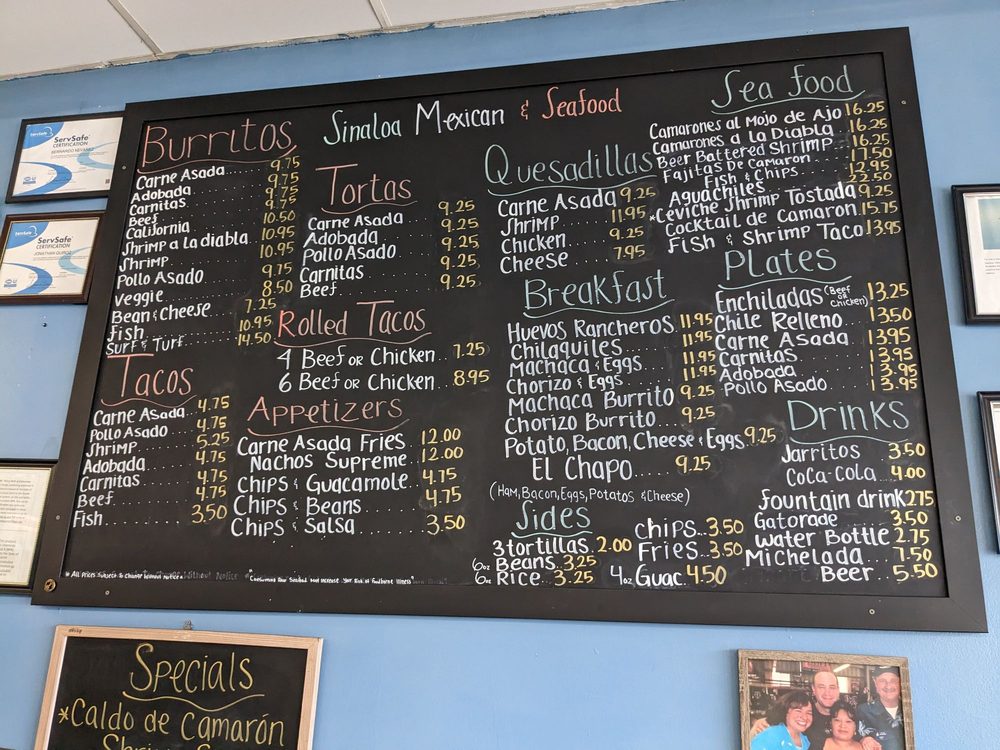 ServSafe
CERTIFICATION
ServSafe
CERTIFICATION
Sinaloa Mexican & Seafood
Burritos
Carne Asada 9.75
Adobada 9.75
Carnitas 9.75
Beef 9.75
California 10.50
Shrimp a la diabla 10.95
Shrimp 10.95
Pollo Asado 9.75
Veggie 8.50
Bean & Cheese 7.25
Fish 10.95
Surf & Turf 14.50
Tacos
Carne Asada 4.75
Pollo Asado 4.75
Shrimp 5.25
Adobada 4.75
Carnitas 4.75
Beef 4.75
Fish 3.50
* All Prices Subject to Change Without Notice
Tortas
Carne Asada 9.25
Adobada 9.25
Pollo Asado 9.25
Carnitas 9.25
Beef 9.25
Rolled Tacos
4 Beef or Chicken 7.25
6 Beef or Chicken 8.95
Appetizers
Carne Asada Fries 12.00
Nachos Supreme 12.00
Chips & Guacamole 4.75
Chips & Beans 4.75
Chips & Salsa 3.50
Quesadillas
Carne Asada 9.25
Shrimp 11.95
Chicken 9.25
Cheese 7.95
Breakfast
Huevos Rancheros 11.95
Chilaquiles 11.95
Machaca & Eggs 11.95
Chorizo & Eggs 11.95
Machaca Burrito 9.25
Chorizo Burrito 9.25
Potato, Bacon, Cheese & Eggs 9.25
El Chapo 9.25
(Ham, Bacon, Eggs, Potatos & Cheese)
Sides
3 tortillas 2.00
6oz Beans 3.25
6oz Rice 3.25
Chips 3.50
Fries 3.50
4oz Guac 4.50
Sea food
Camarones al Mojo de Ajo 16.25
Camarones a la Diabla 16.25
Beer Battered Shrimp 16.25
Fajitas De Camaron 17.50
Fish & Chips 12.95
Aguachiles 22.50
*Ceviche Shrimp Tostada 9.25
Cocktail de Camaron 15.75
Fish & Shrimp Taco 13.95
Plates
Enchiladas (Beef or Chicken) 13.25
Chile Relleno 13.50
Carne Asada 13.95
Carnitas 13.95
Adobada 13.95
Pollo Asado 13.95
Drinks
Jarritos 3.50
Coca-Cola 4.00
fountain drink 2.75
Gatorade 3.50
Water Bottle 2.75
Michelada 7.50
Beer 5.50
Specials
*Caldo de Camarón